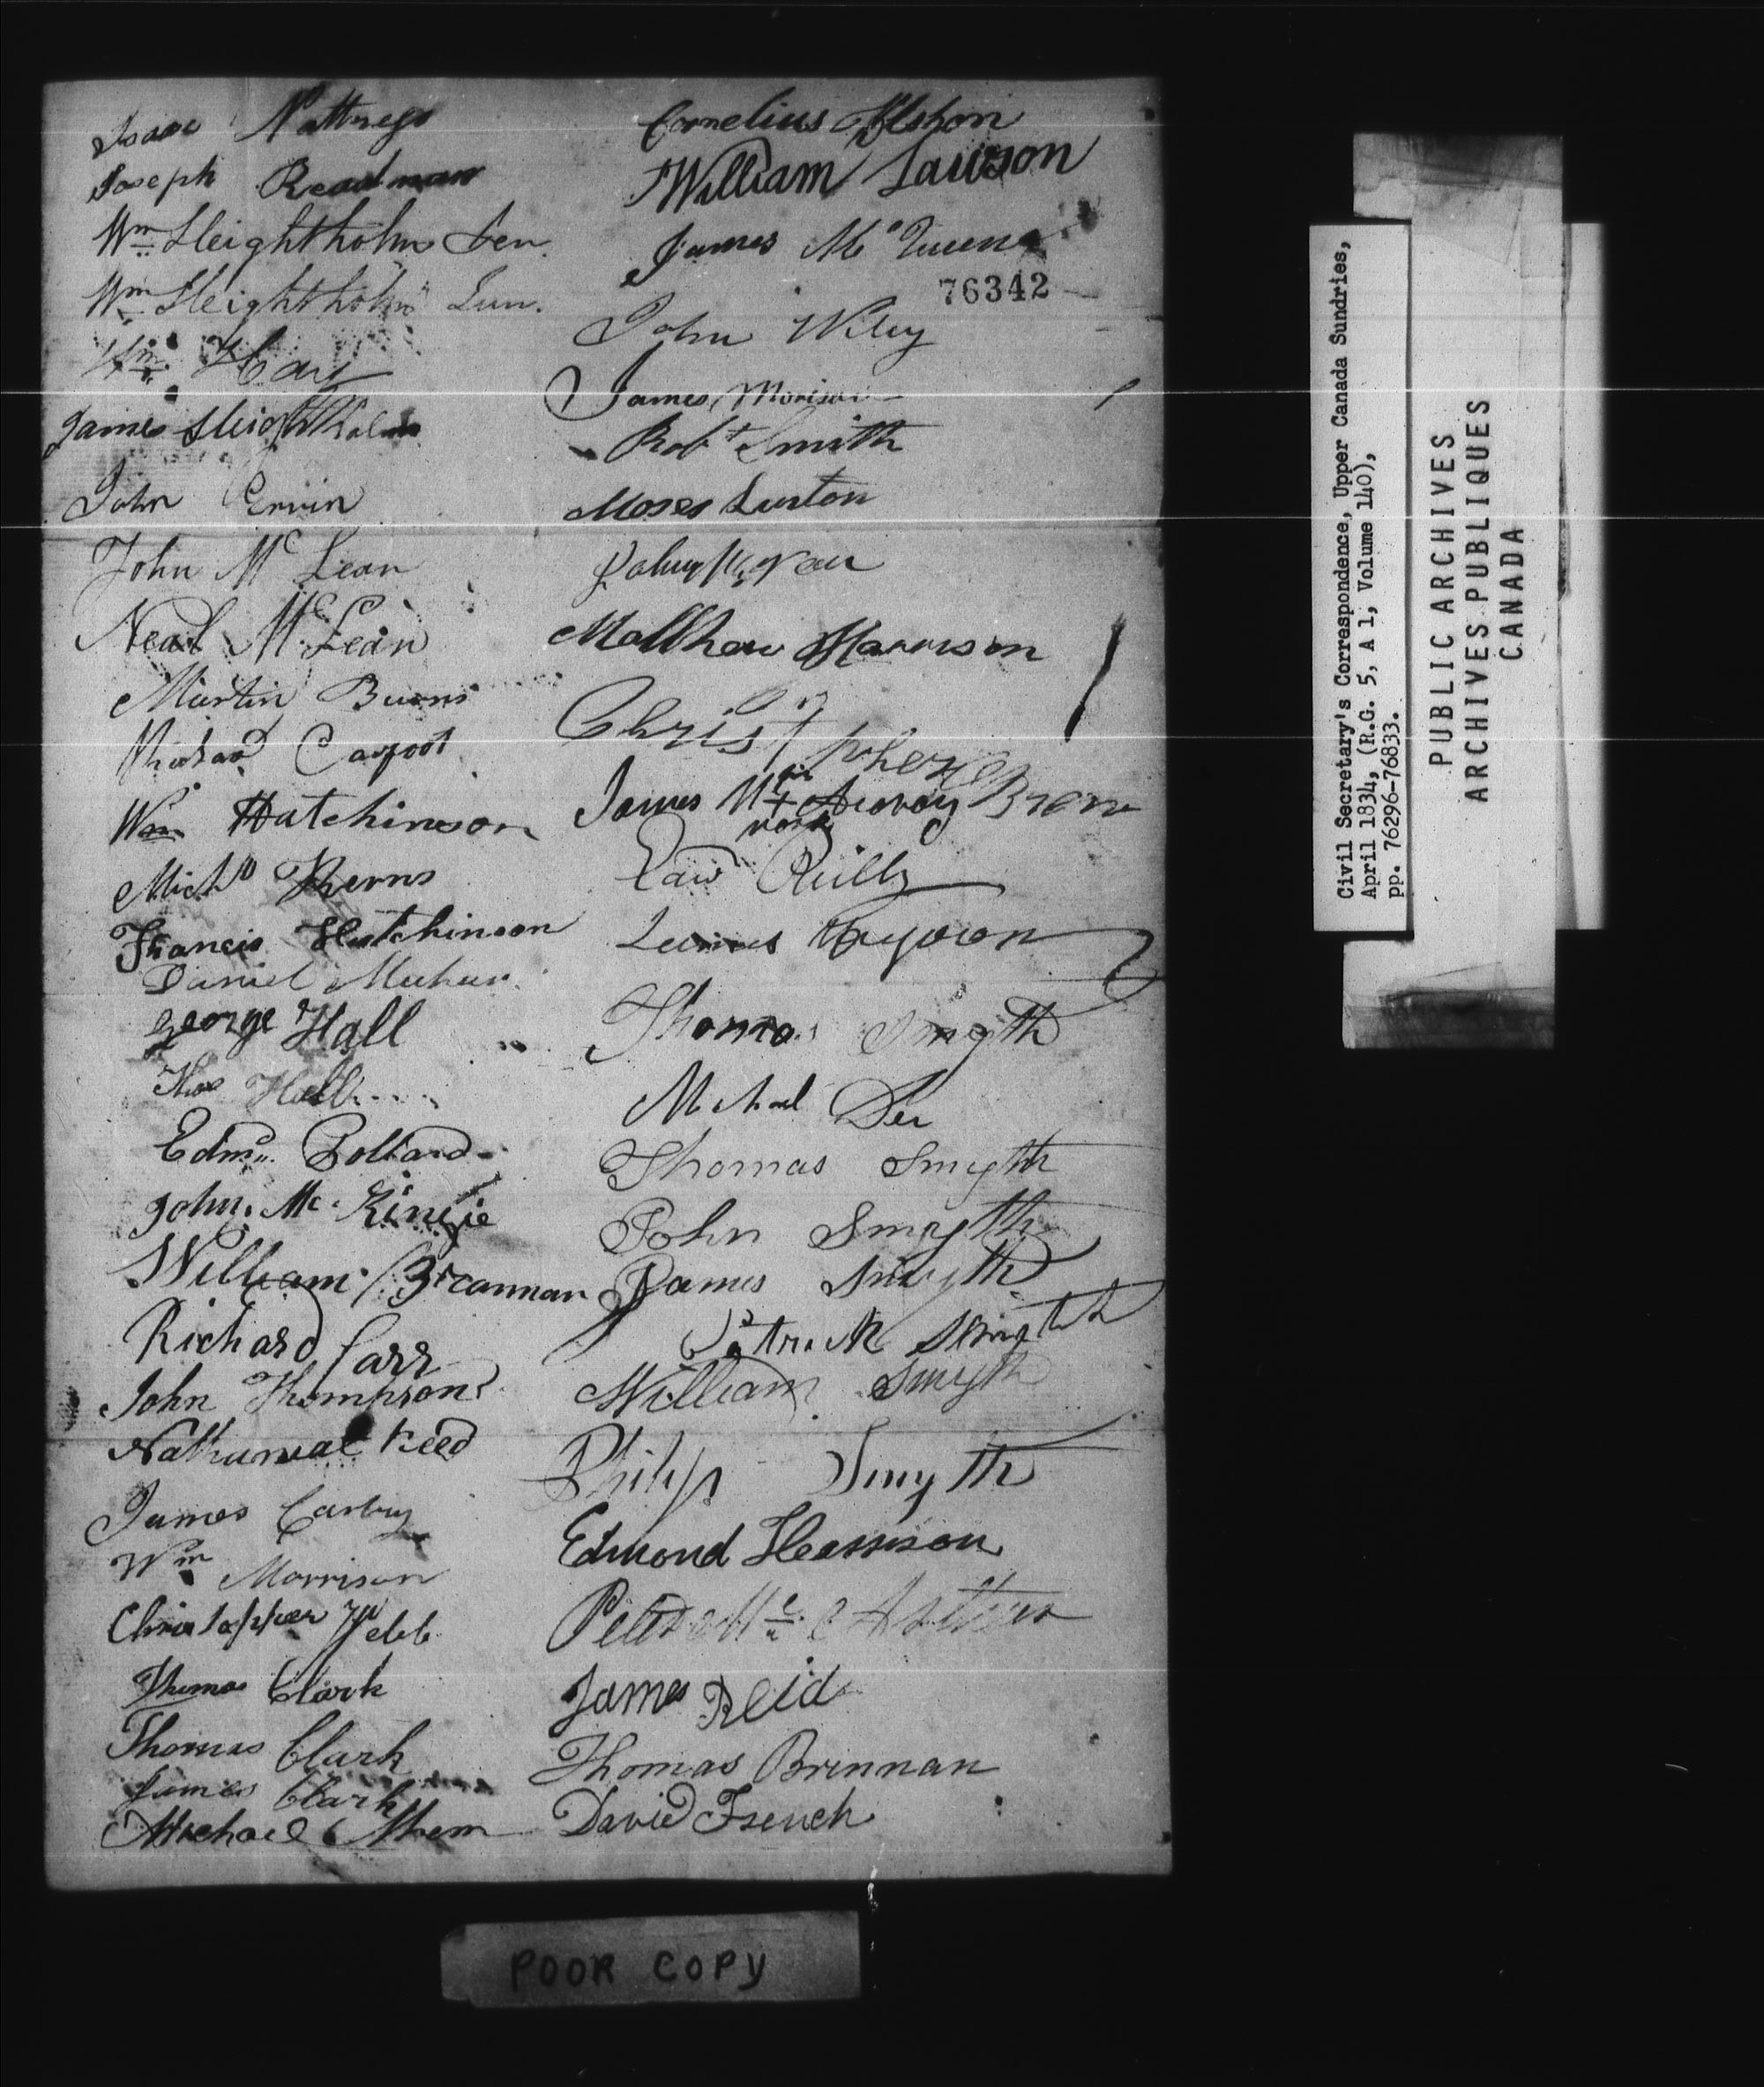 Isaac Nattress
Joseph Readman
Wm Sleightholm Sen.
Wm Sleightholm Jun.
Wm Hay
James Sleightholm
John Erwin
John Mc Lean
Neal Mc Lean
Martin Burns
Wm Hutchinson
Francis Hutchinson
Daniel
George Hall
Thos Hall
Edmd Pollard
John Mc Kinzie
William Brannan
Richard Carr
John Thompson
Nathaniel Reed
James
Wm Morrison
Christopher Webb
Thomas Clark
Thomas Clark
James Clark
Michael
Cornelius
William Lawson
James Mc Queen
76342
John Wiley
James
Robt Smith
Moses
John
Matthew Harrison
Christopher
James
mark
Reilly
Thomas Smyth
Thomas Smyth
John Smyth
James Smyth
Patrick Smyth
William Smyth
Philip Smyth
Edmond Harrison
Peter Mc
James Reid
Thomas Brennan
David French
Civil Secretary's Correspondence, Upper Canada Sundries,
April 1834, (R.G. 5, A 1, Volume 140),
pp. 76296-76833.
PUBLIC ARCHIVES
ARCHIVES PUBLIQUES
CANADA
POOR COPY